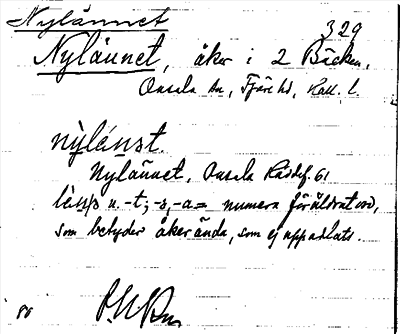 Nylännet
329
Nylännet, åker i 2 Bäcken,
Onsala sn, Fjäre hd, Hall. l.
nỳlénst.
Nylännet, Onsala Räddf. 61
n. -t; -s, -a = numera föråldrat ord,
som betyder åkerända, som ej uppodlats.